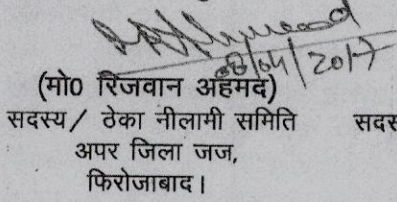 06/04/2017
(मो0 रिजवान अहमद)
सदस्य/ ठेका नीलामी समिति सदस
अपर जिला जज,
फिरोजाबाद।